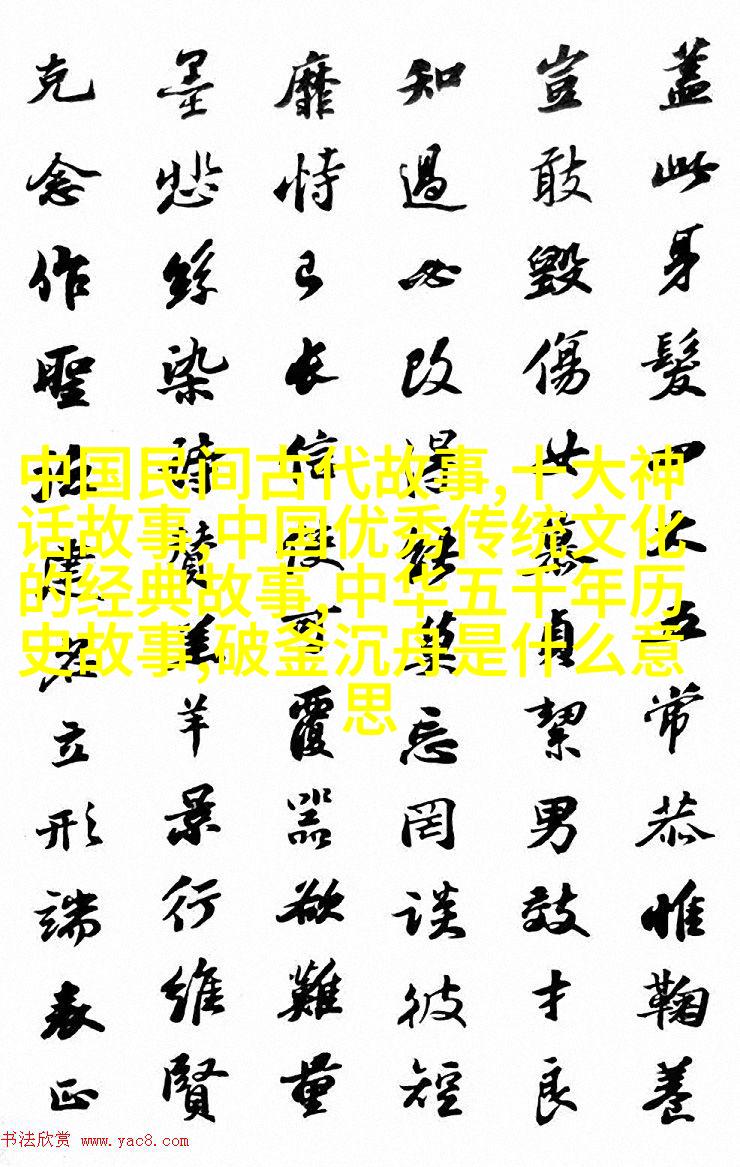 蓋此身髮四大五常恭惟鞠養
豈敢毀傷女慕貞絜男效才良
知過必改得能莫忘罔談彼短
靡恃己長信使可覆器欲難量
墨悲絲染詩讚羔羊景行維賢
克念作聖德建名立形端表正
中国民间古代故事,十大神
话故事,中国优秀传统文化
的经典故事,中华五千年历
史故事,破釜沉舟是什么意
思
书法欣赏 www.yac8.com